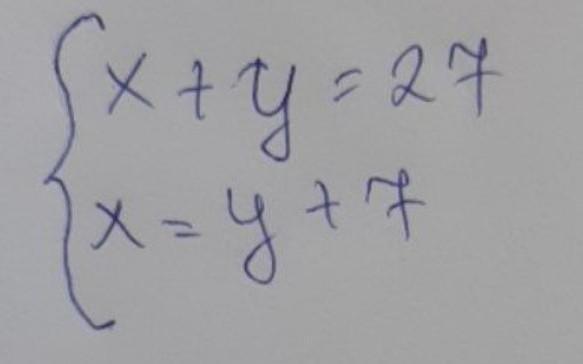 x + y = 27
x = y + 7